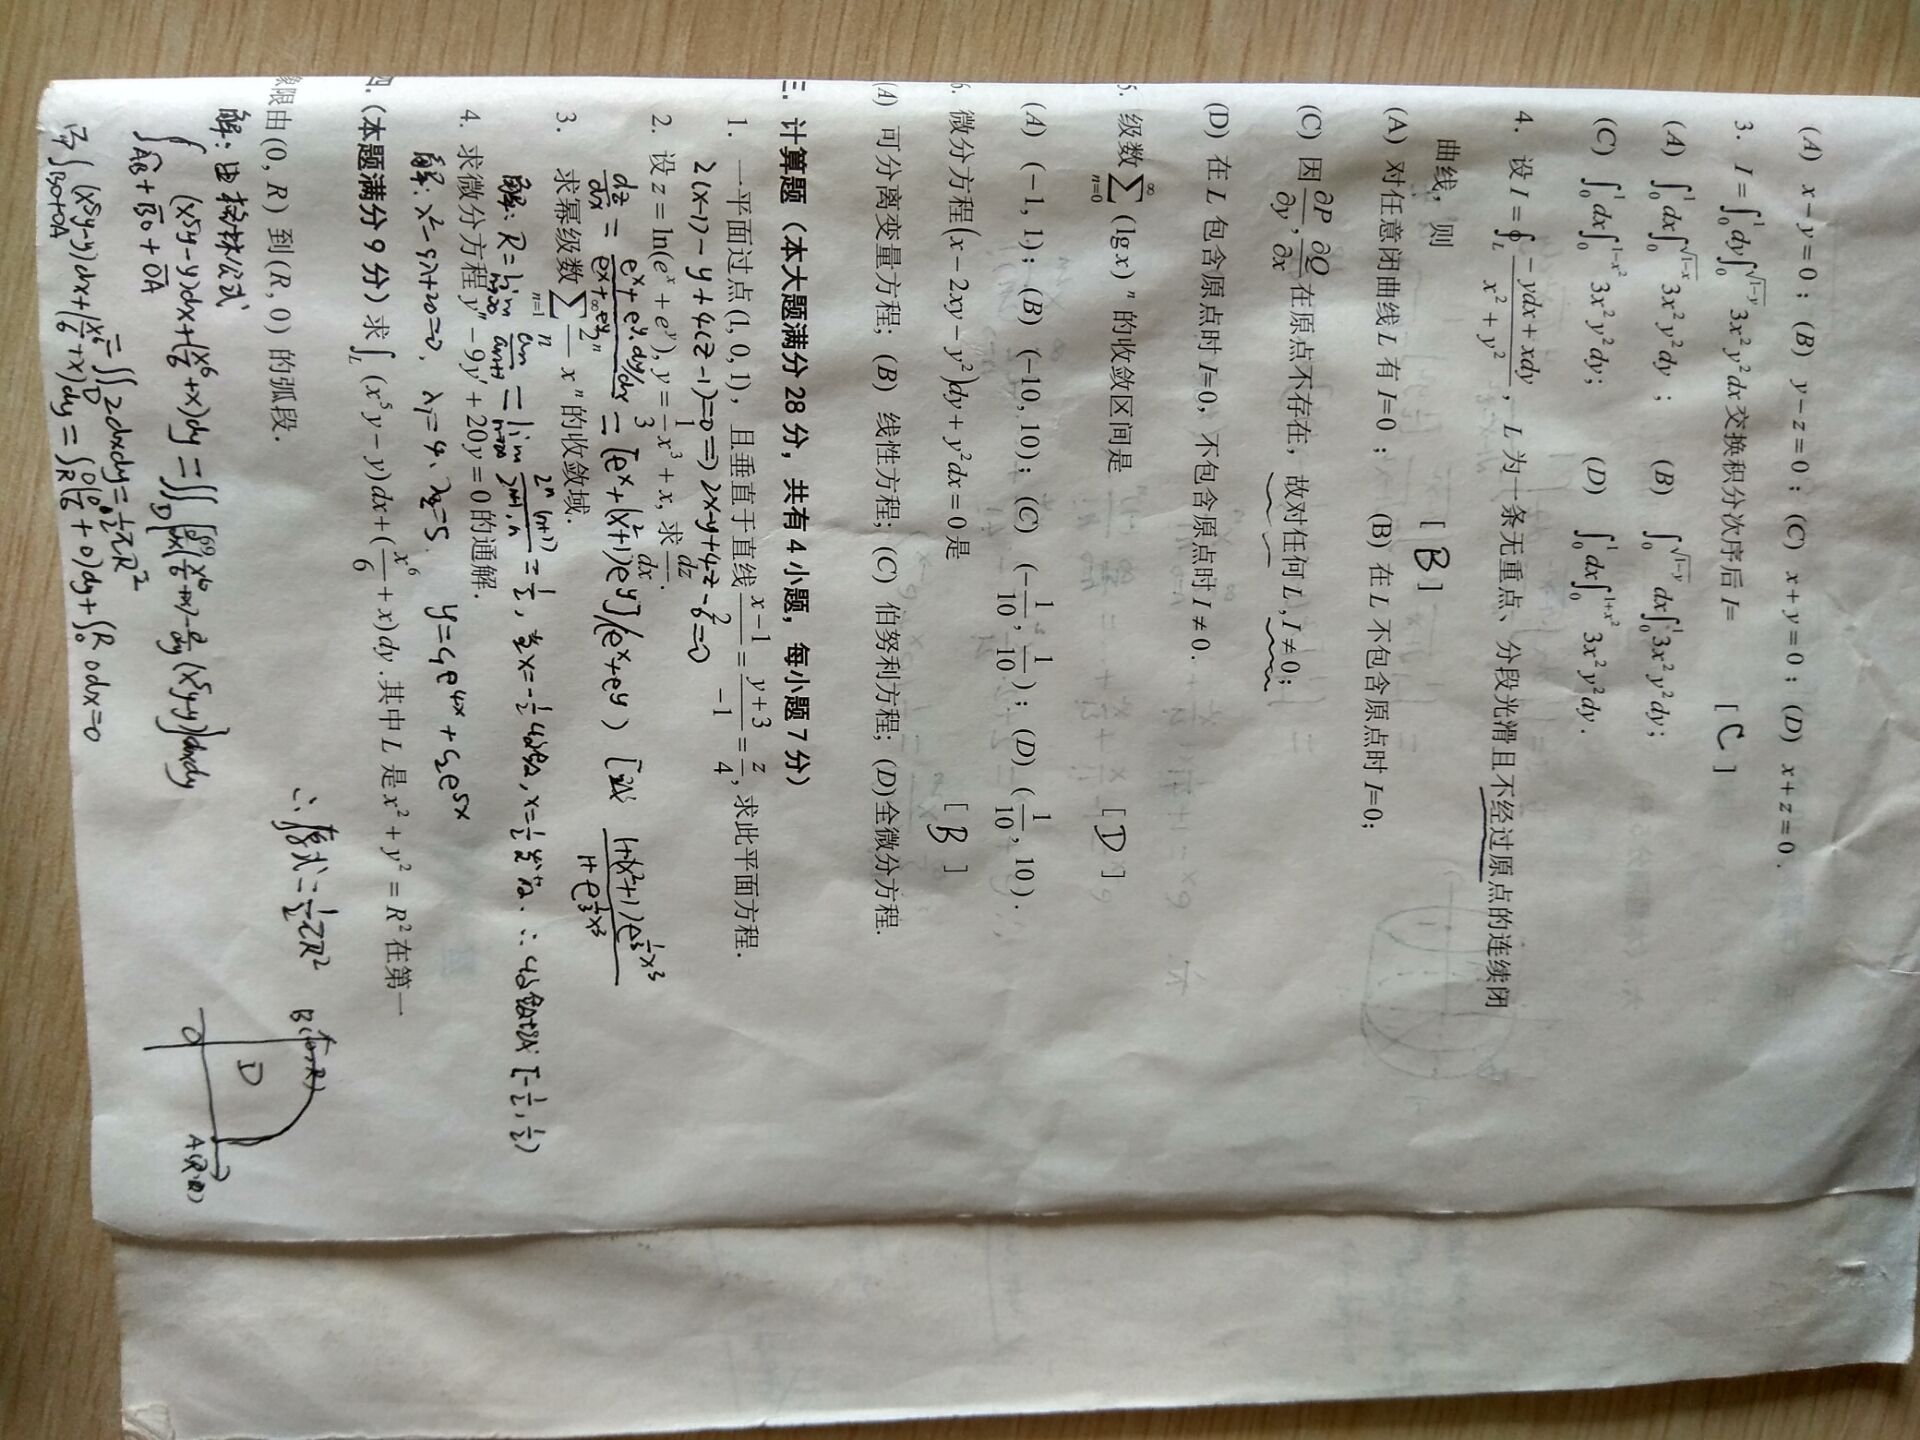 (A) x－y＝0；(B) y－z＝0；(C) x＋y＝0；(D) x＋z＝0.
3. I＝∫₀¹dy∫₀^√(1－y) 3x²y²dx 交换积分次序后 I＝ [ C ]
(A) ∫₀¹dx∫₀^√(1－x) 3x²y²dy； (B) ∫₀^√(1－y) dx∫₀¹3x²y²dy；
(C) ∫₀¹dx∫₀^(1－x²) 3x²y²dy； (D) ∫₀¹dx∫₀^(1＋x²) 3x²y²dy.
4. 设 I＝∮_L (－ydx＋xdy)/(x²＋y²)，L 为一条无重点、分段光滑且不经过原点的连续闭
曲线，则 [ B ]
(A) 对任意闭曲线 L 有 I＝0； (B) 在 L 不包含原点时 I＝0；
(C) 因 ∂P/∂y, ∂Q/∂x 在原点不存在，故对任何 L, I≠0；
(D) 在 L 包含原点时 I＝0，不包含原点时 I≠0.
5. 级数 ∑_(n=0)^∞ (lg x)ⁿ 的收敛区间是 [ D ]
(A) (－1, 1)；(B) (－10, 10)；(C) (－1/10, 1/10)；(D) (1/10, 10).
6. 微分方程(x－2xy－y²)dy＋y²dx＝0是 [ B ]
(A) 可分离变量方程；(B) 线性方程；(C) 伯努利方程；(D)全微分方程.
三. 计算题（本大题满分 28 分，共有 4 小题，每小题 7 分）
1. 一平面过点(1, 0, 1)，且垂直于直线 (x－1)/2＝(y＋3)/－1＝z/4，求此平面方程.
2(x-1)-y+4(z-1)=0⇒2x-y+4z-6=0
2. 设 z＝ln(eˣ＋eʸ)，y＝1/3 x³＋x，求 dz/dx.
dz/dx = (eˣ+eʸ·dy/dx)/(eˣ+eʸ) = [eˣ+(x²+1)eʸ]/(eˣ+eʸ) (1+(x²+1)e^(1/3 x³))/(1+e^(1/3 x³))
3. 求幂级数 ∑_(n=1)^∞ 2ⁿ/n xⁿ 的收敛域.
解：R=lim_(n→∞) an/an+1 = lim_(n→∞) 2ⁿ(n+1)/2ⁿ⁺¹·n = 1/2, 当x=-1/2收敛, x=1/2发散. ∴收敛域 [-1/2, 1/2)
4. 求微分方程 y″－9y′＋20y＝0 的通解.
解：λ²-9λ+20=0, λ₁=4, λ₂=5. y=C₁e⁴ˣ+C₂e⁵ˣ
四.（本题满分 9 分）求 ∫_L (x⁵y－y)dx＋(x⁶/6＋x)dy.其中 L 是 x²＋y²＝R² 在第一
象限由(0, R) 到(R, 0) 的弧段.
解：由格林公式 ∴原式=-1/2πR²
B(0,R)
O D A(R,0)
∫_(AB+BO+OA) (x⁵y-y)dx+(x⁶/6+x)dy=∬_D[∂/∂x(x⁶/6+x)-∂/∂y(x⁵y-y)]dxdy
=∬_D 2dxdy=1/2πR²
又∫_(BO+OA) (x⁵y-y)dx+(x⁶/6+x)dy=∫_R^0(0/6+0)dy+∫₀^R 0dx=0